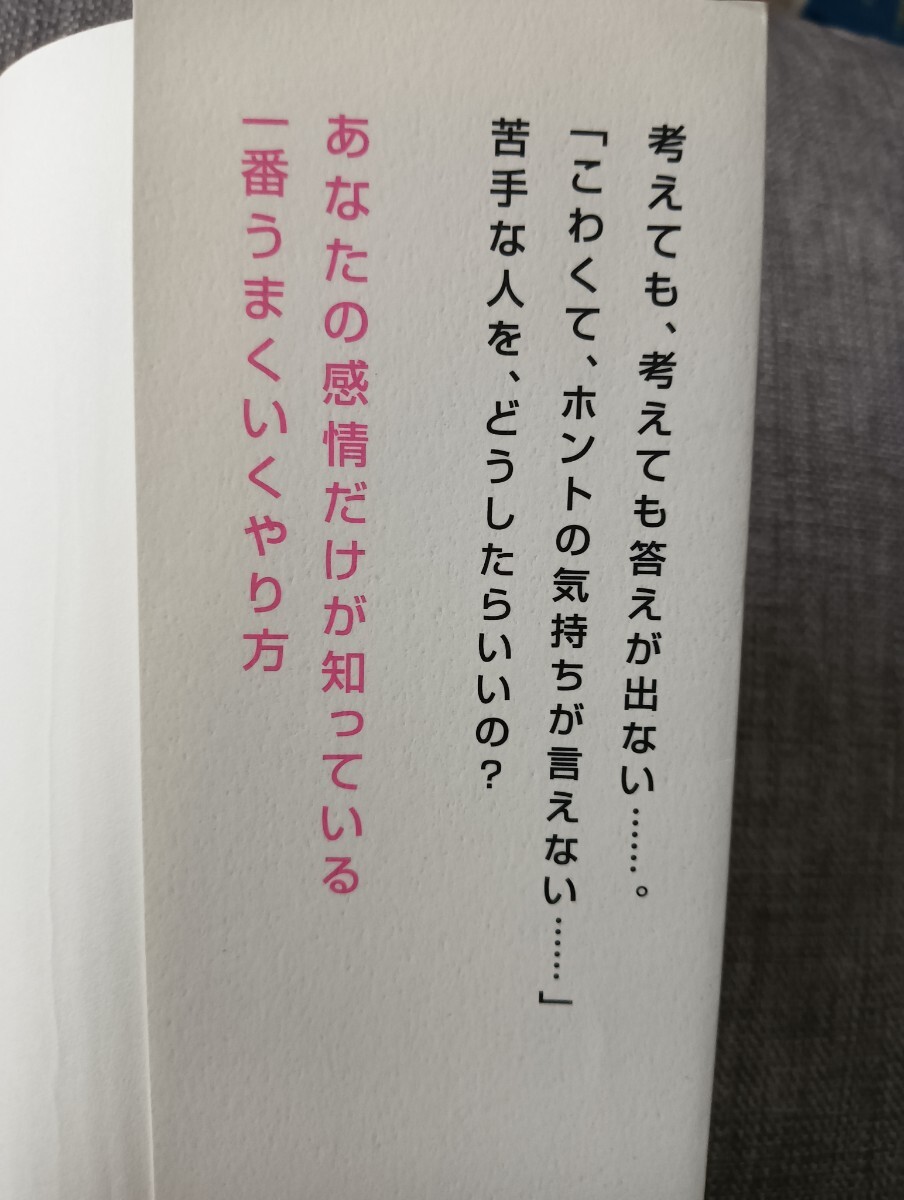 考えても、考えても答えが出ない……。
「こわくて、ホントの気持ちが言えない……」
苦手な人を、どうしたらいいの？
あなたの感情だけが知っている
一番うまくいくやり方